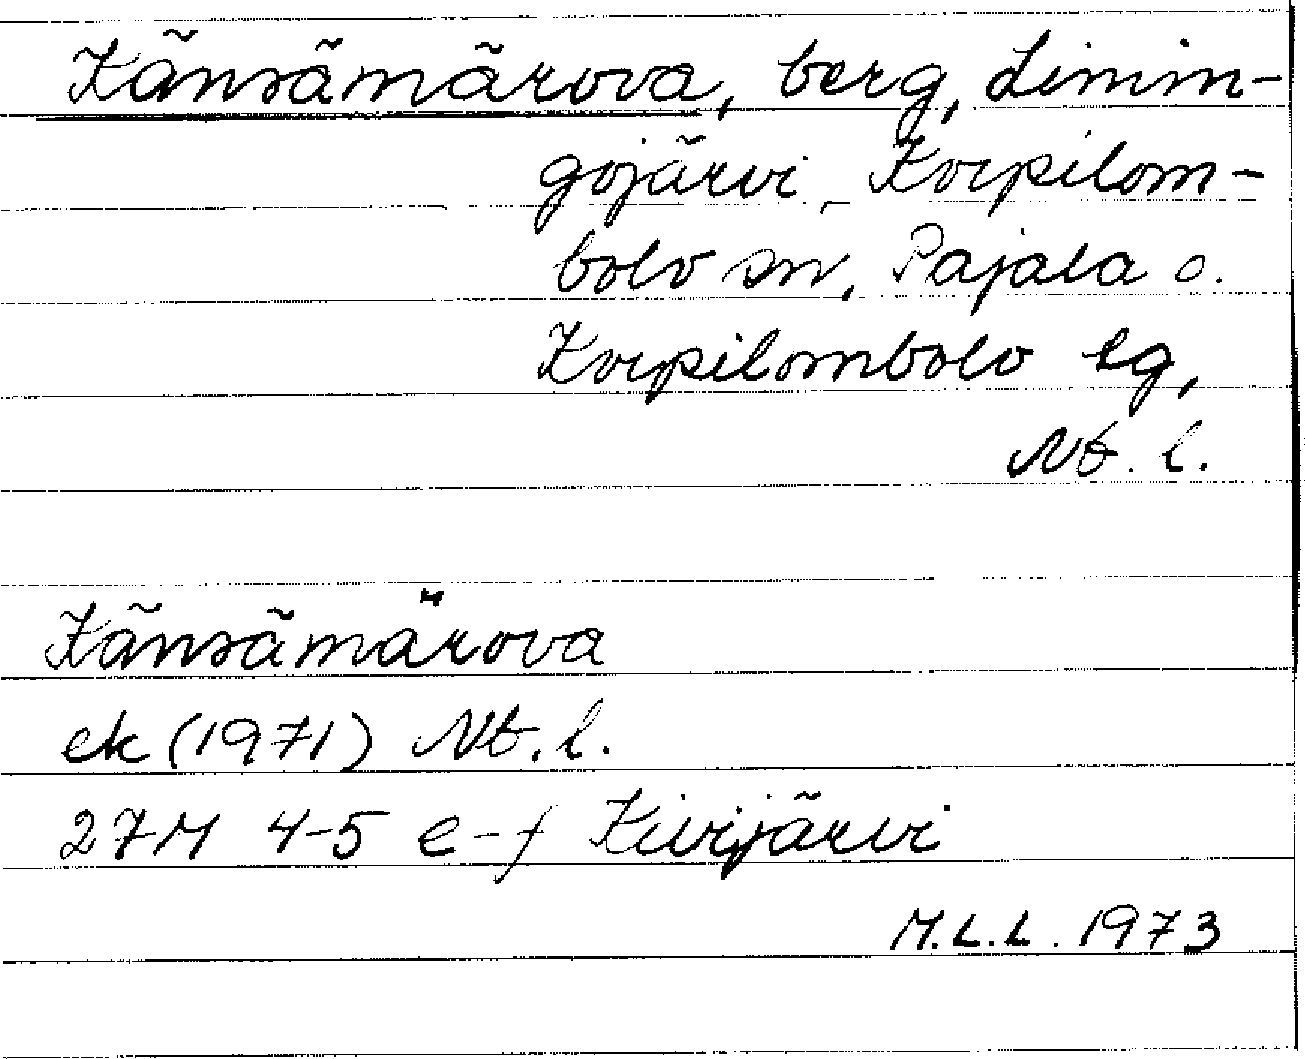 Känsämärova, berg, Limin-
gojärvi, Korpilom-
bolo sn, Pajala o.
Korpilombolo lg,
Nb. l.
Känsämärova
ek (1971) Nb. l.
27M 4-5 e-f Kivijärvi
M.L.L. 1973